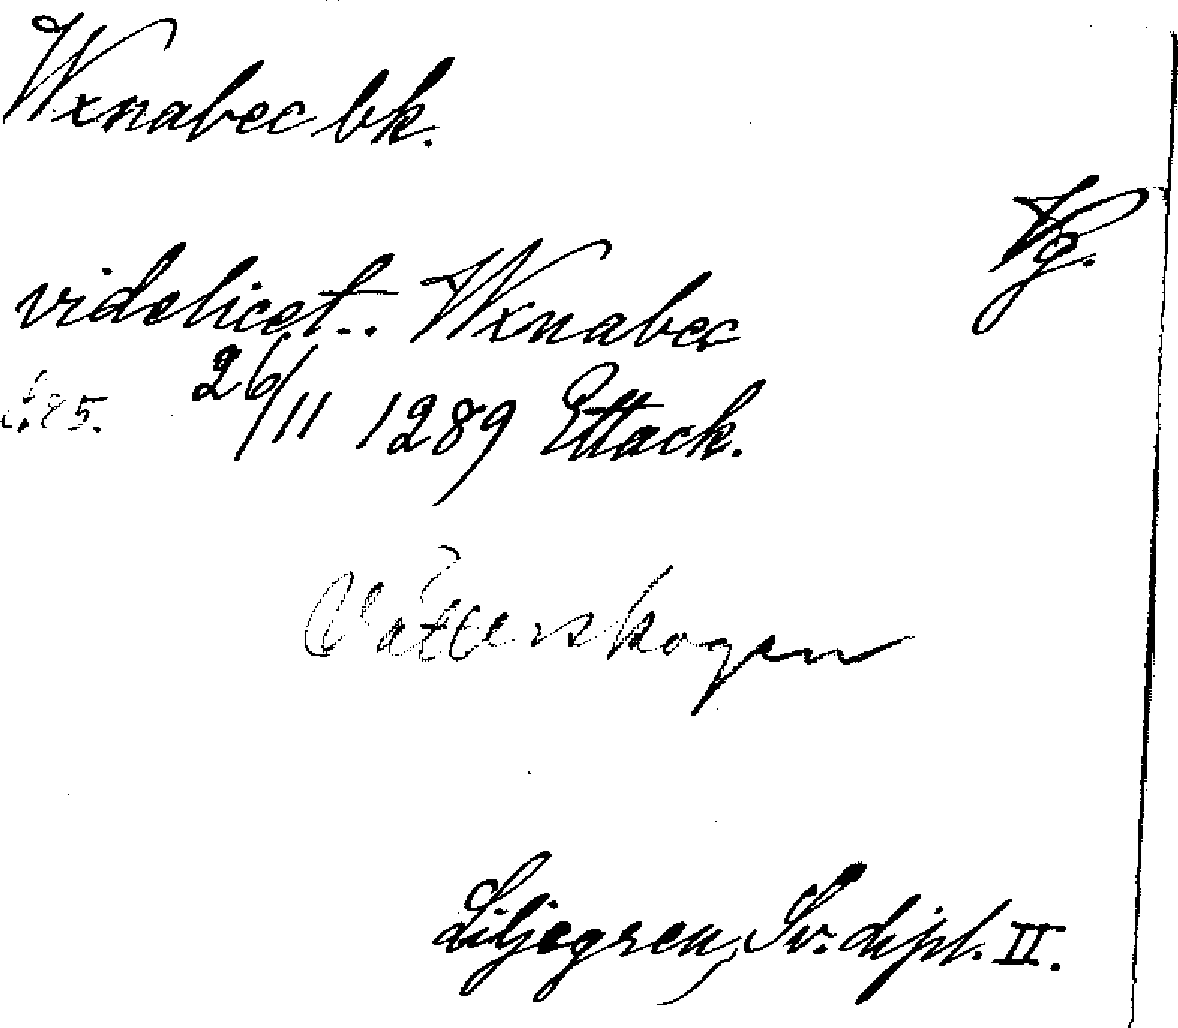 Wxnabec bk.
Vg.
videlicet.. Wxnabec
s. 85. 26/11 1289 Ettack.
Vätterskogen
Liljegren, Sv. dipl. II.